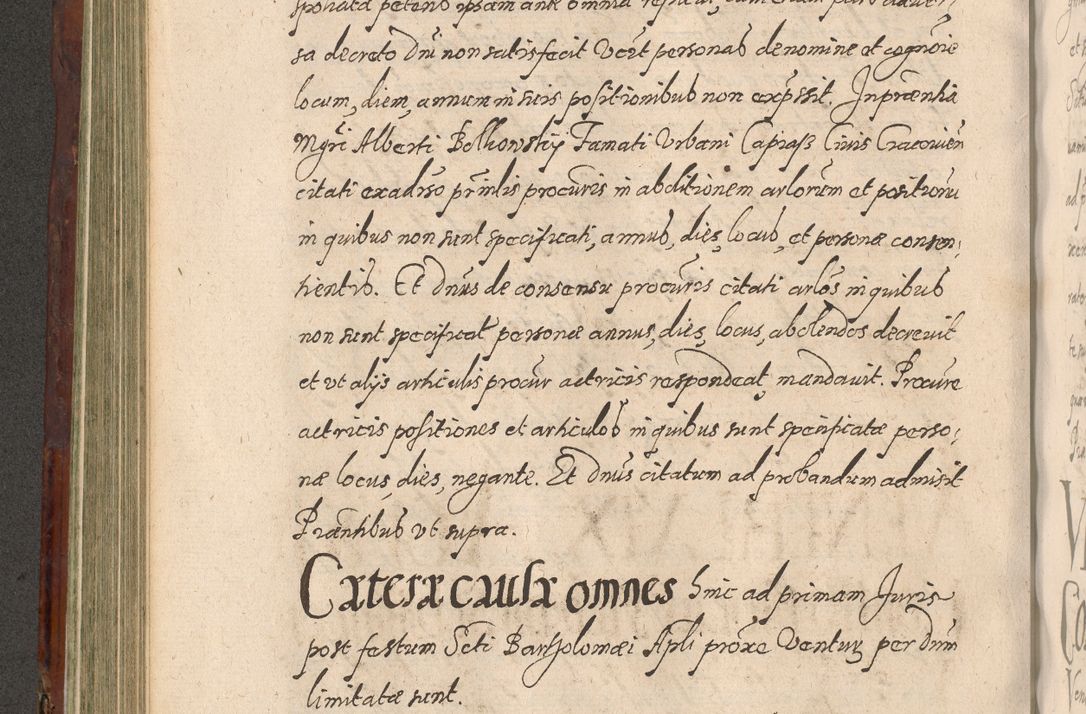 sa decreto Dni non satisfecit Vcet personas de nomine et cognoie
locum, diem, annum in suis positionibus non expssit. In prænha
Mgri Alberti Belkowskiy Famati Urbani Capras Civis Cracovien
citati ex adiso prmlis procuris in abditionem arlorum et positionu
in quibus non sunt specificati, annus, dies, locus, et personæ consen,
tientis. Et Dnus de consensu procuris citati arlos in quibus
non sunt specificat personæ annus, dies, locus, abolendos decrevit
et vt alijs articulis procur actricis respondeat mandavit. Procure
actricis positiones et articulos in quibus sunt specificatæ perso,
næ locus, dies, negante. Et Dnus citatum ad probandum admisit
Præntibus vt supra.
Cæteræ causæ omnes hinc ad primam Juris
post festum Scti Bartholomæi Apli proxe Ventur per Dnm
limitatæ sunt.